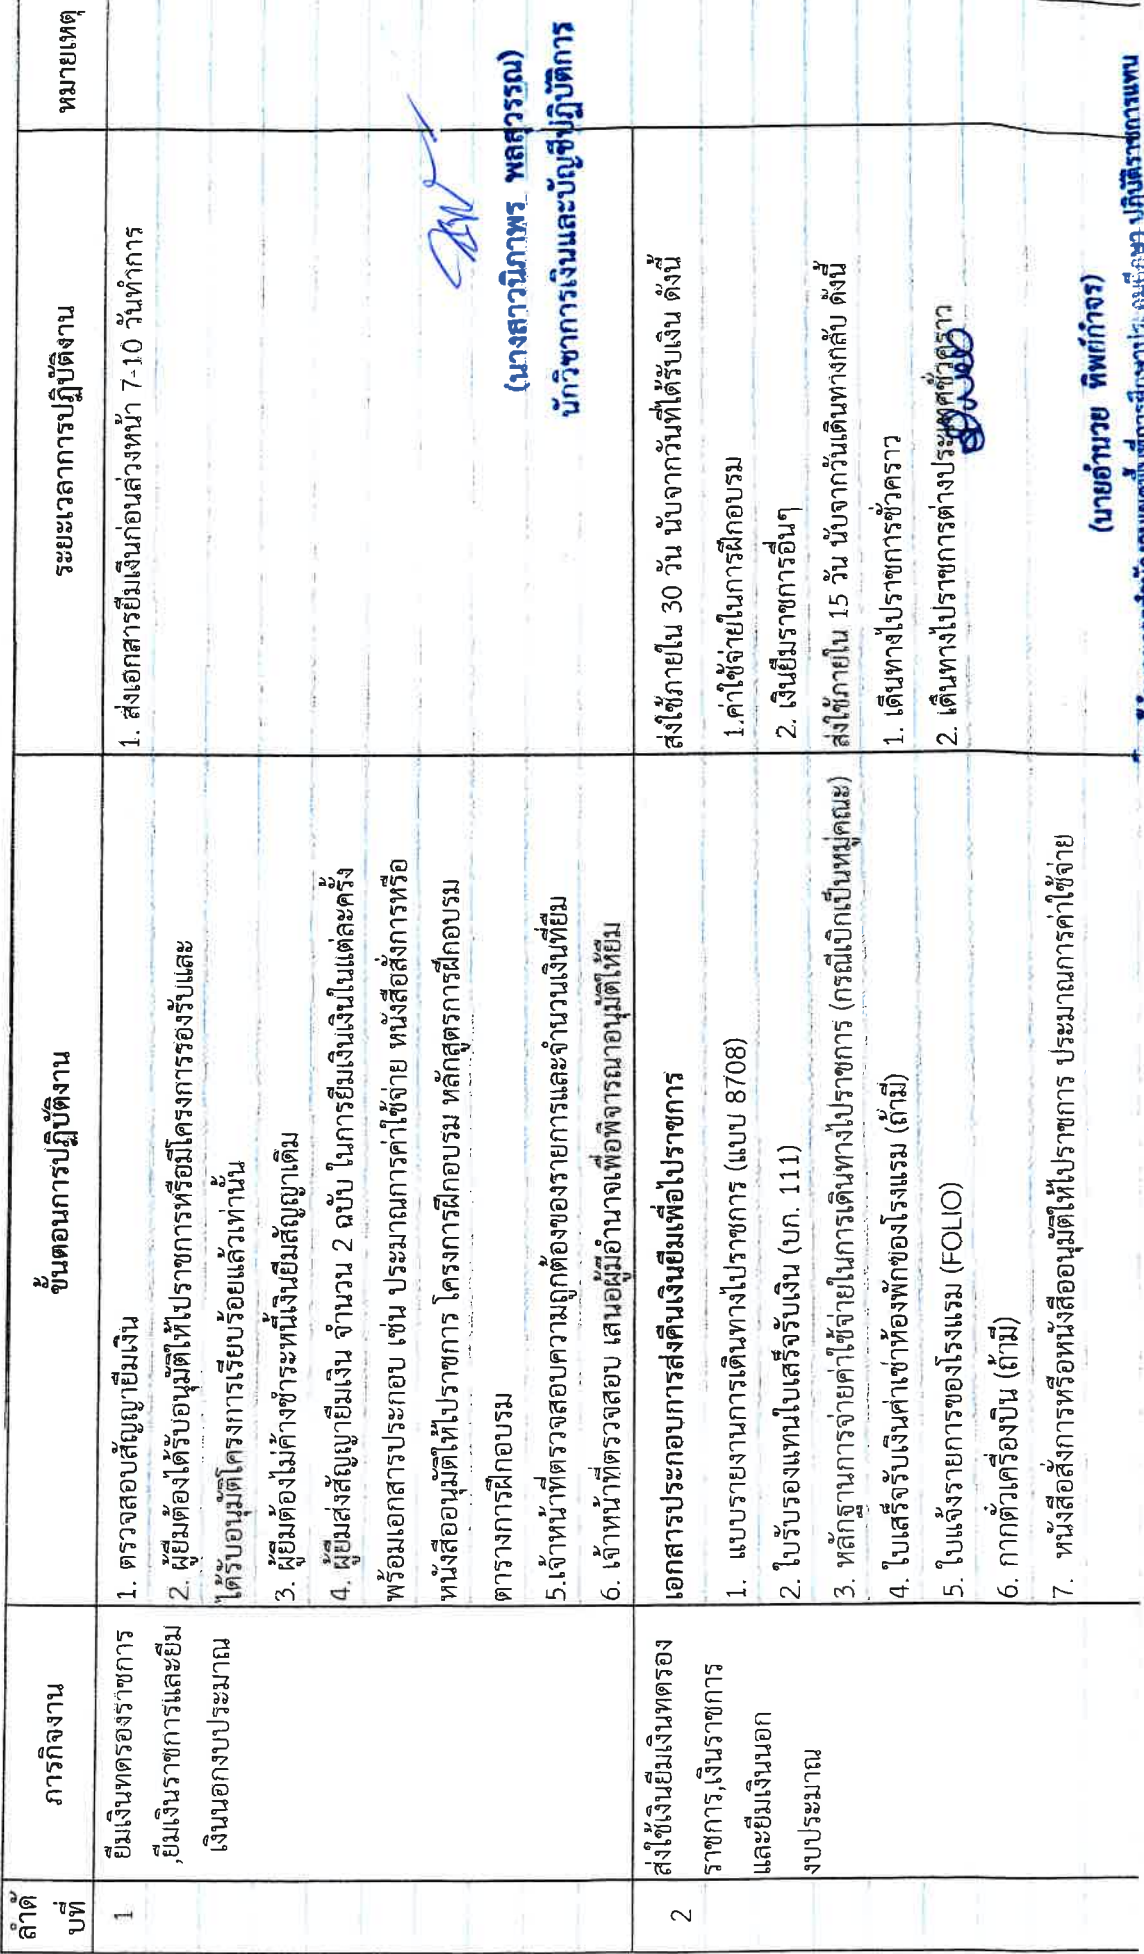 ลำดับที่
ภารกิจงาน
ขั้นตอนการปฏิบัติงาน
ระยะเวลาการปฏิบัติงาน
หมายเหตุ
1
ยืมเงินทดรองราชการ
,ยืมเงินราชการและยืม
เงินนอกงบประมาณ
1. ตรวจสอบสัญญายืมเงิน
2. ผู้ยืมต้องได้รับอนุมัติให้ไปราชการหรือมีโครงการรองรับและ
ได้รับอนุมัติโครงการเรียบร้อยแล้วเท่านั้น
3. ผู้ยืมต้องไม่ค้างชำระหนี้เงินยืมสัญญาเดิม
4. ผู้ยืมส่งสัญญายืมเงิน จำนวน 2 ฉบับ ในการยืมเงินเงินในแต่ละครั้ง
พร้อมเอกสารประกอบ เช่น ประมาณการค่าใช้จ่าย หนังสือสั่งการหรือ
หนังสืออนุมัติให้ไปราชการ โครงการฝึกอบรม หลักสูตรการฝึกอบรม
ตารางการฝึกอบรม
5.เจ้าหน้าที่ตรวจสอบความถูกต้องของรายการและจำนวนเงินที่ยืม
6. เจ้าหน้าที่ตรวจสอบ เสนอผู้มีอำนาจเพื่อพิจารณาอนุมัติให้ยืม
1. ส่งเอกสารยืมเงินก่อนล่วงหน้า 7-10 วันทำการ
(นางสาวนิภาพร พลสุวรรณ)
นักวิชาการเงินและบัญชีปฏิบัติการ
2
ส่งใช้เงินยืมเงินทดรอง
ราชการ,เงินราชการ
และยืมเงินนอก
งบประมาณ
เอกสารประกอบการส่งคืนเงินยืมเพื่อไปราชการ
1. แบบรายงานการเดินทางไปราชการ (แบบ 8708)
2. ใบรับรองแทนใบเสร็จรับเงิน (บก. 111)
3. หลักฐานการจ่ายค่าใช้จ่ายในการเดินทางไปราชการ (กรณีเบิกเป็นหมู่คณะ)
4. ใบเสร็จรับเงินค่าเช่าห้องพักของโรงแรม (ถ้ามี)
5. ใบแจ้งรายการของโรงแรม (FOLIO)
6. กากตั๋วเครื่องบิน (ถ้ามี)
7. หนังสือสั่งการหรือหนังสืออนุมัติให้ไปราชการ ประมาณการค่าใช้จ่าย
ส่งใช้ภายใน 30 วัน นับจากวันที่ได้รับเงิน ดังนี้
1.ค่าใช้จ่ายในการฝึกอบรม
2. เงินยืมราชการอื่นๆ
ส่งใช้ภายใน 15 วัน นับจากวันเดินทางกลับ ดังนี้
1. เดินทางไปราชการชั่วคราว
2. เดินทางไปราชการต่างประเทศชั่วคราว
(นายอำนวย ทิพย์กำจร)
ปฏิบัติราชการแทน